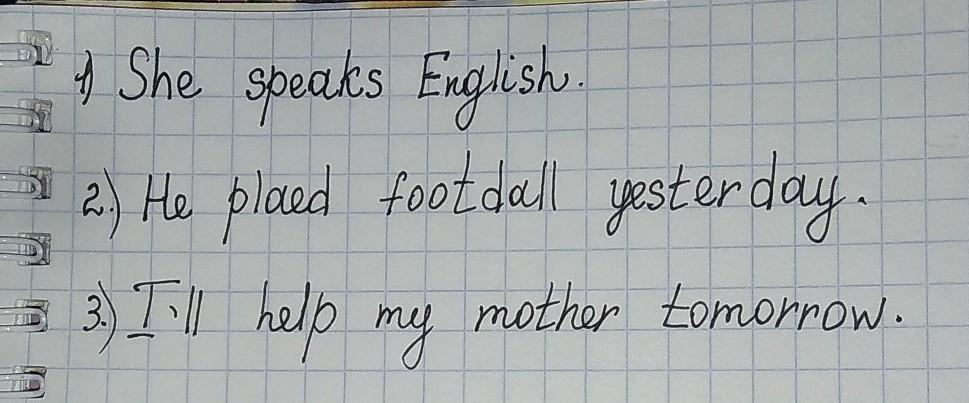 1) She speaks English.
2.) He plaed footdall yesterday.
3.) I'll help my mother tomorrow.